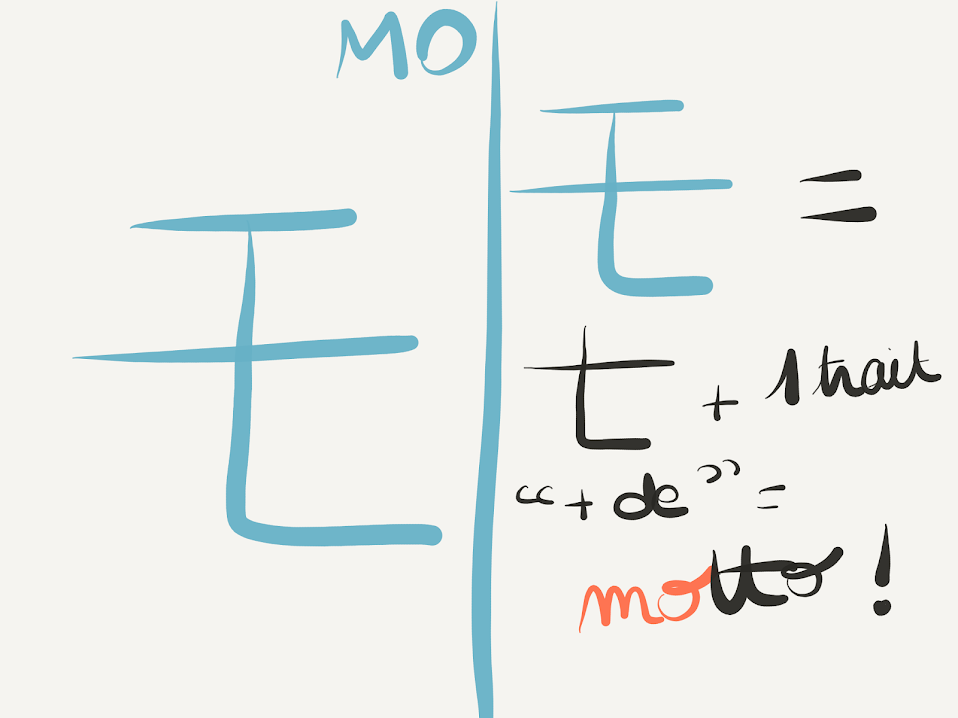 MO
モ
モ =
t + 1 trait
“ + de ” =
motto !